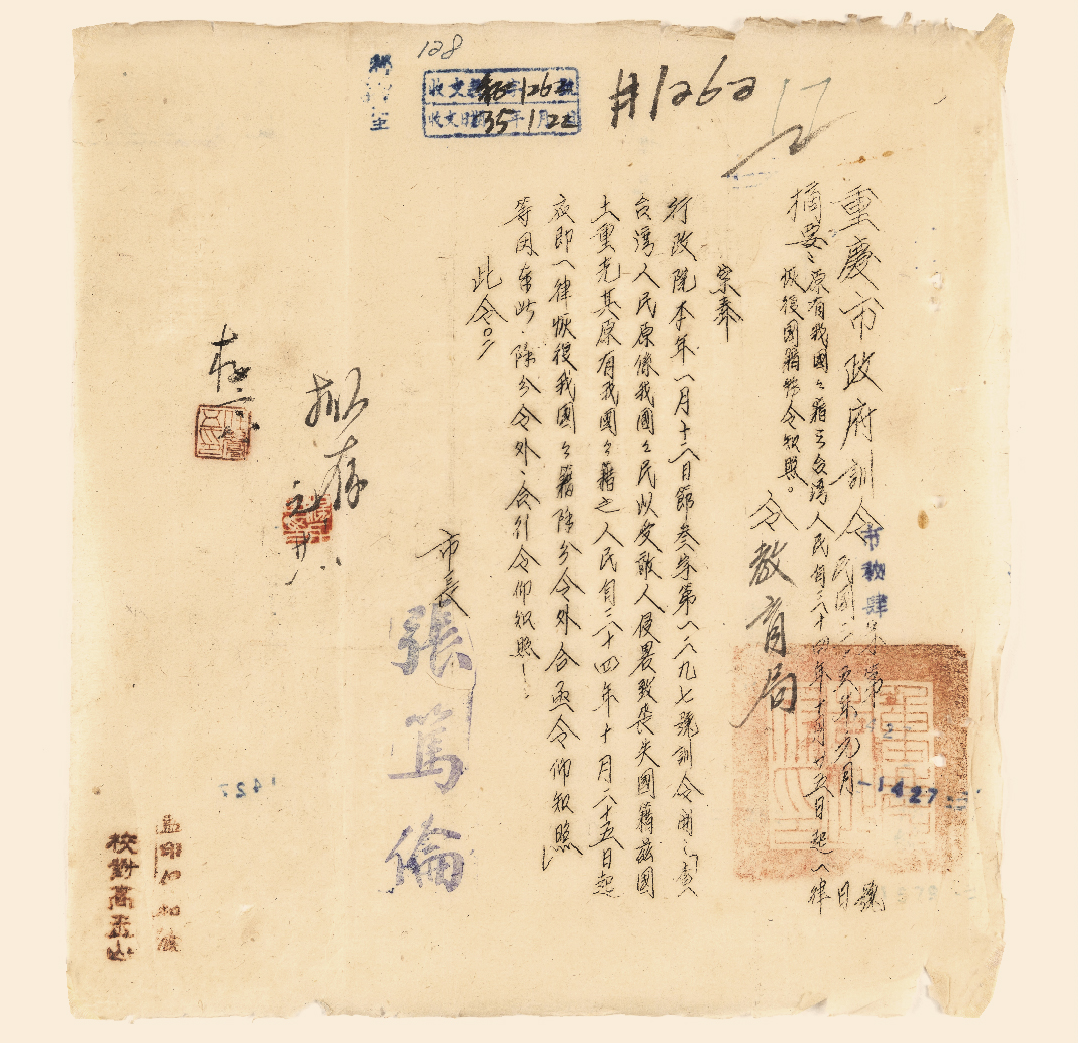 128
收文 字1262號
收文日期35年1月22
#1262
17
重慶市政府訓令 市秘肆字第 號
民國三十五年元月 日
1427
摘要:原有我國之籍之台灣人民自三十四年十月廿五日起一律
恢復國籍特令知照。
令教育局
案奉
行政院本年一月十二日節叁字第一二九七號訓令開:「查
台灣人民原係我國之民以受敵人侵畧致喪失國籍茲國
土重光其原有我國之籍之人民自三十四年十月二十五日起
應即一律恢復我國之籍除分令外合亟令仰知照
等因奉此,除分令外,合行令仰知照!
此令。
市長
張篤倫
擬存
1427
監印
校對高玉山